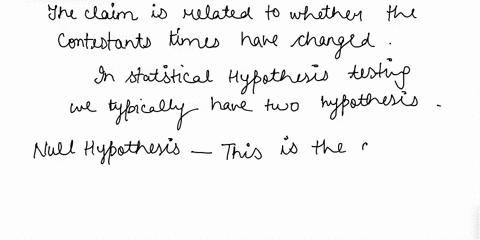 The claim is related to whether the
Contestants times have changed.
In statistical Hypothesis testing
we typically have two hypothesis.
Null Hypothesis — This is the